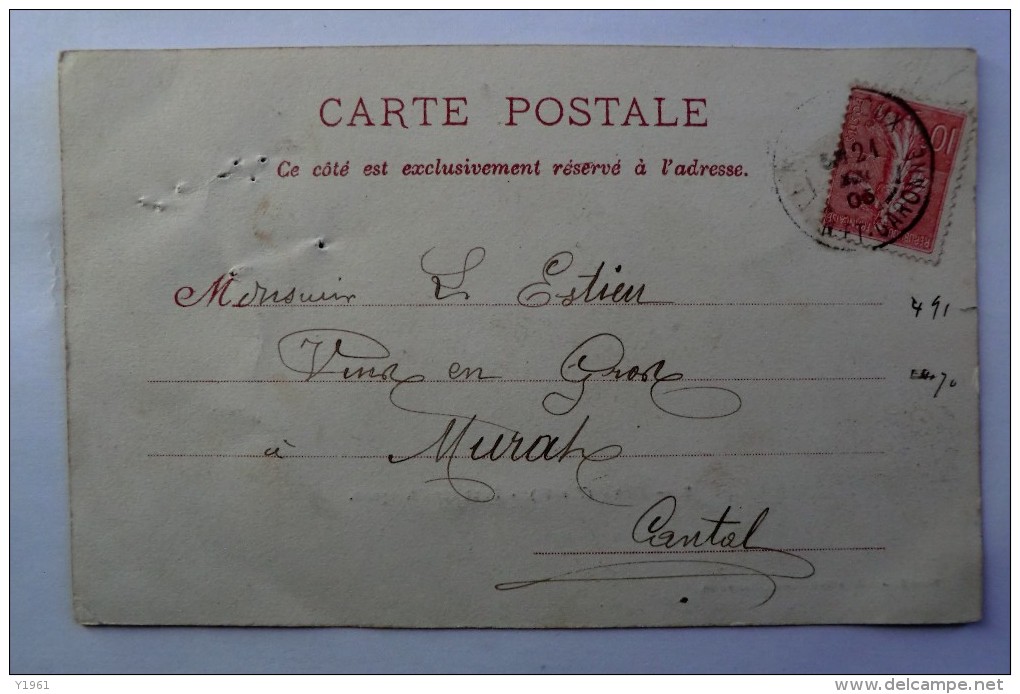 CARTE POSTALE
Ce côté est exclusivement réservé à l'adresse.
10
21
06
T.-ET-GARONNE
Monsieur L Estieu
491
Vins en Gros
70
à Murat
Cantal
Y1961
www.delcampe.net